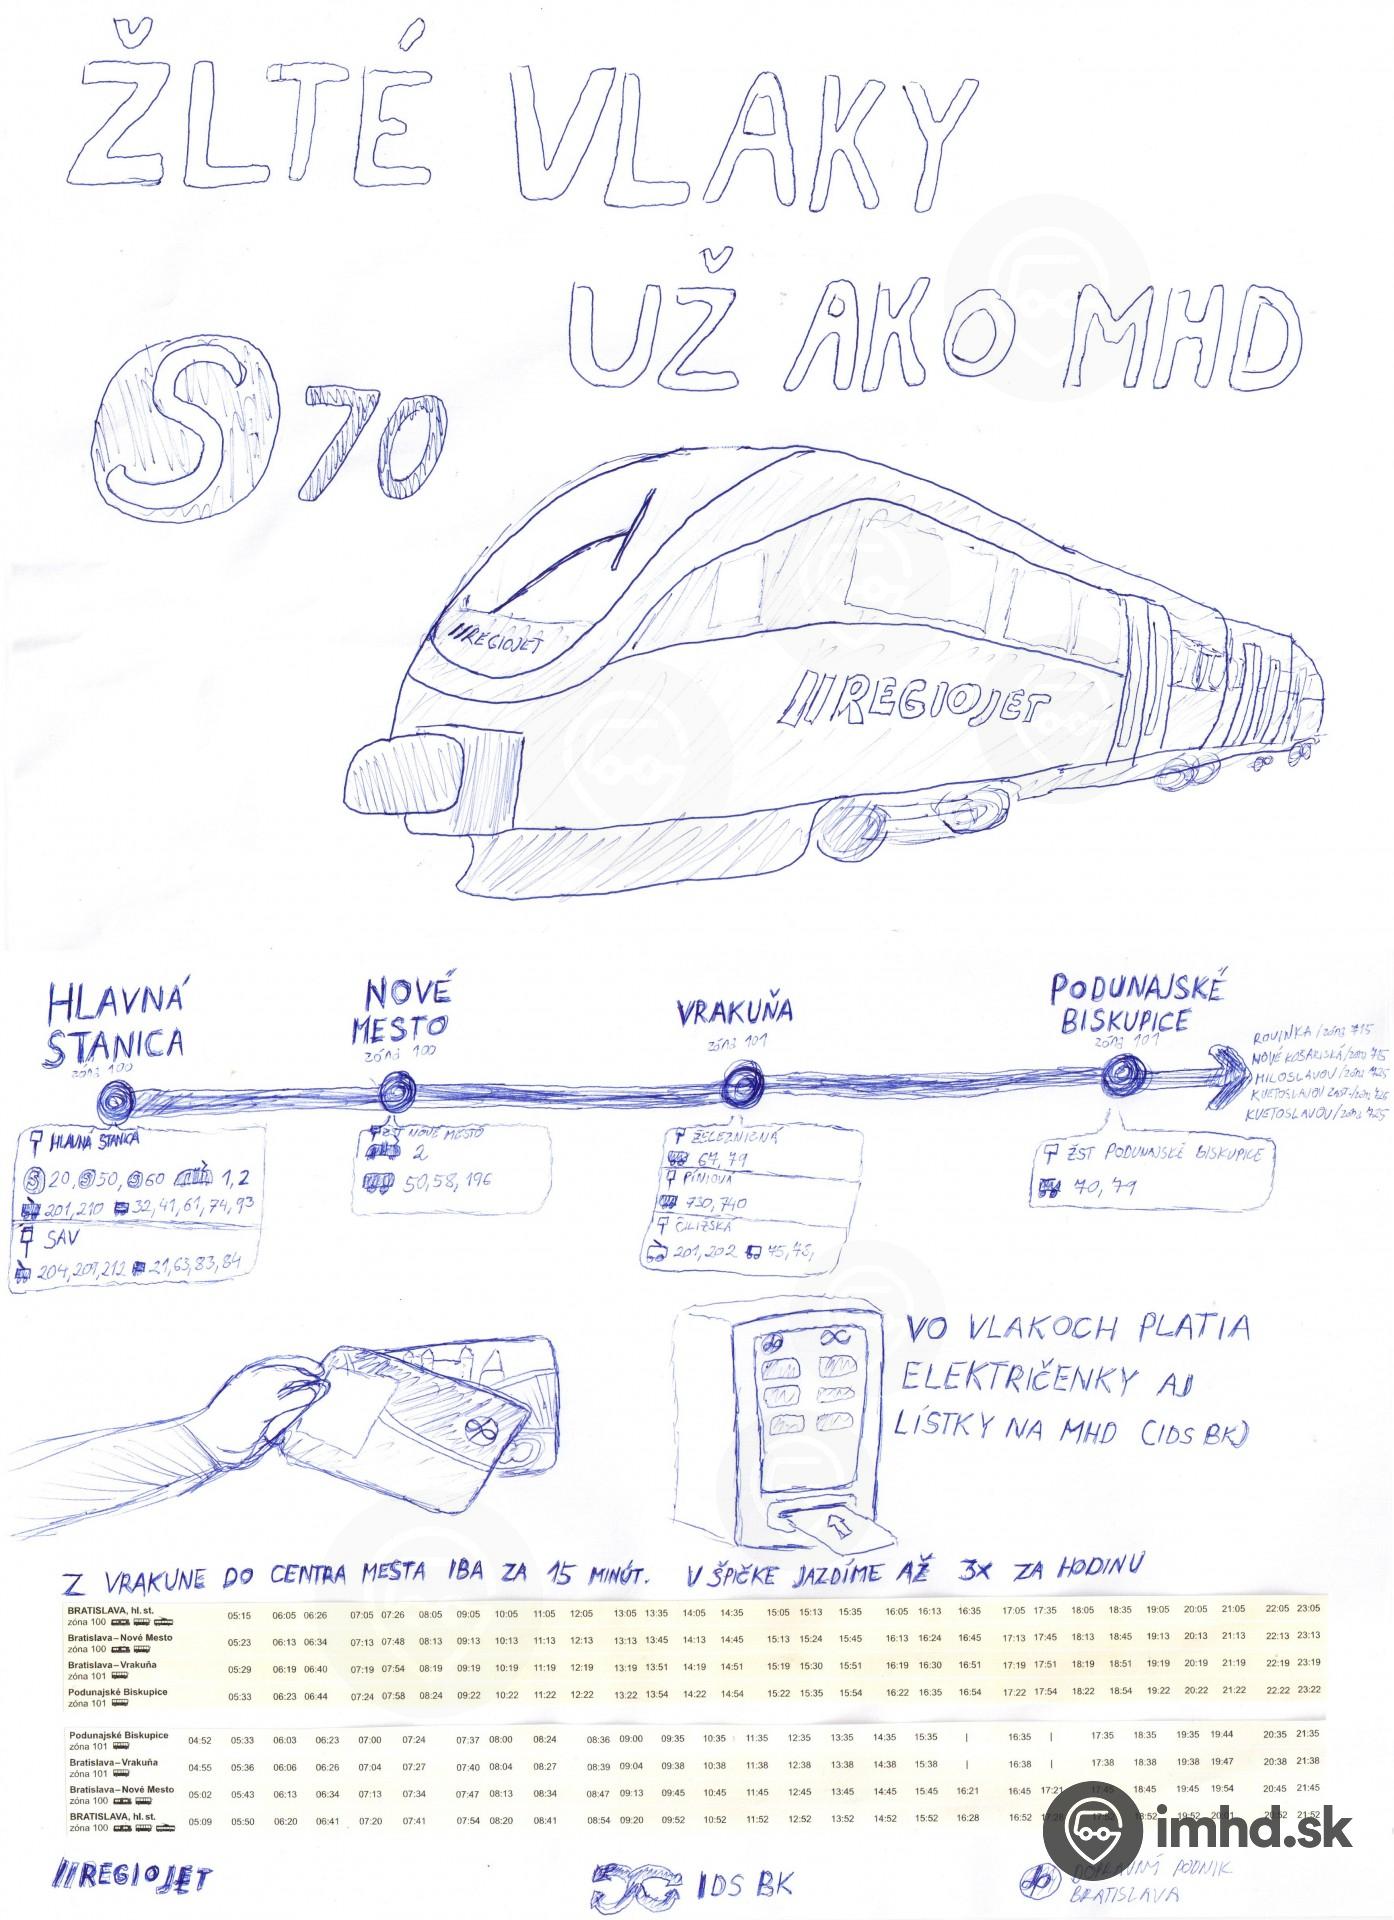 ŽLTÉ VLAKY
UŽ AKO MHD
S 70
REGIOJET
REGIOJET
HLAVNÁ
STANICA
zóna 100
NOVÉ
MESTO
zóna 100
VRAKUŇA
zóna 101
PODUNAJSKÉ
BISKUPICE
zóna 101
ROVINKA/zóna 715
NOVÉ KOŠARISKÁ/zóna 715
MILOSLAVOV/zóna 725
KVETOSLAVOV/zóna 725
HLAVNÁ STANICA
S 20, S 50, S 60 1, 2
201, 210 32, 41, 61, 74, 93
SAV
204, 207, 212 21, 63, 83, 84
ŽST NOVÉ MESTO
2
50, 58, 196
ŽELEZNIČNÁ
67, 79
PÍNIOVÁ
730, 740
ČILIŽSKÁ
201, 202 75, 78,
ŽST PODUNAJSKÉ BISKUPICE
70, 79
VO VLAKOCH PLATIA
ELEKTRIČENKY AJ
LÍSTKY NA MHD (IDS BK)
Z VRAKUNE DO CENTRA MESTA IBA ZA 15 MINÚT. V ŠPIČKE JAZDÍME AŽ 3X ZA HODINU
BRATISLAVA, hl. st. 05:15 06:05 06:26 07:05 07:26 08:05 09:05 10:05 11:05 12:05 13:05 13:35 14:05 14:35 15:05 15:13 15:35 16:05 16:13 16:35 17:05 17:35 18:05 18:35 19:05 20:05 21:05 22:05 23:05
zóna 100
Bratislava–Nové Mesto 05:23 06:13 06:34 07:13 07:48 08:13 09:13 10:13 11:13 12:13 13:13 13:45 14:13 14:45 15:13 15:24 15:45 16:13 16:24 16:45 17:13 17:45 18:13 18:45 19:13 20:13 21:13 22:13 23:13
zóna 100
Bratislava–Vrakuňa 05:29 06:19 06:40 07:19 07:54 08:19 09:19 10:19 11:19 12:19 13:19 13:51 14:19 14:51 15:19 15:30 15:51 16:19 16:30 16:51 17:19 17:51 18:19 18:51 19:19 20:19 21:19 22:19 23:19
zóna 101
Podunajské Biskupice 05:33 06:23 06:44 07:24 07:58 08:24 09:22 10:22 11:22 12:22 13:22 13:54 14:22 14:54 15:22 15:35 15:54 16:22 16:35 16:54 17:22 17:54 18:22 18:54 19:22 20:22 21:22 22:22 23:22
zóna 101
Podunajské Biskupice 04:52 05:33 06:03 06:23 07:00 07:24 07:37 08:00 08:24 08:36 09:00 09:35 10:35 11:35 12:35 13:35 14:35 15:35 | 16:35 | 17:35 18:35 19:35 19:44 20:35 21:35
zóna 101
Bratislava–Vrakuňa 04:55 05:36 06:06 06:26 07:04 07:27 07:40 08:04 08:27 08:39 09:04 09:38 10:38 11:38 12:38 13:38 14:38 15:38 | 16:38 | 17:38 18:38 19:38 19:47 20:38 21:38
zóna 101
Bratislava–Nové Mesto 05:02 05:43 06:13 06:34 07:13 07:34 07:47 08:13 08:34 08:47 09:13 09:45 10:45 11:45 12:45 13:45 14:45 15:45 16:21 16:45 17:21 17:45 18:45 19:45 19:54 20:45 21:45
zóna 100
BRATISLAVA, hl. st. 05:09 05:50 06:20 06:41 07:20 07:41 07:54 08:20 08:41 08:54 09:20 09:52 10:52 11:52 12:52 13:52 14:52 15:52 16:28 16:52 17:28 17:52 18:52 19:52 20:01 20:52 21:52
zóna 100
imhd.sk
REGIOJET
IDS BK
DOPRAVNÝ PODNIK
BRATISLAVA